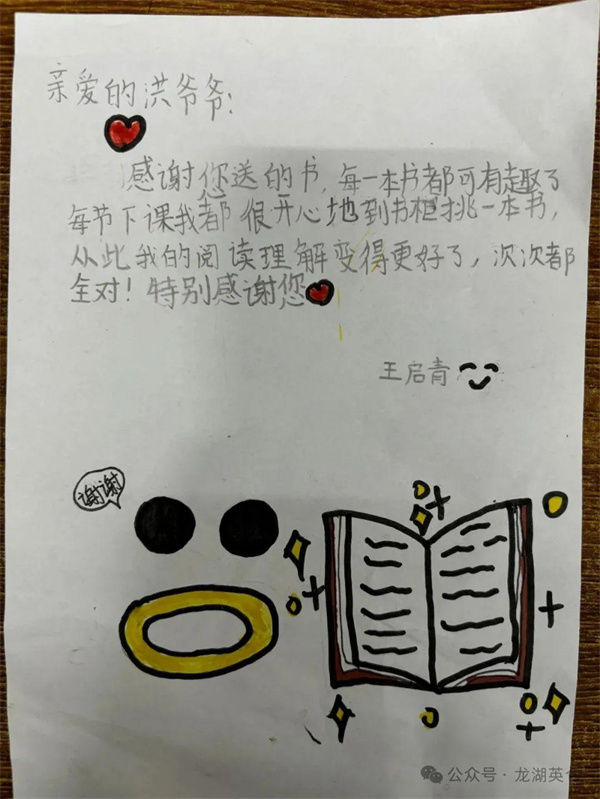 亲爱的洪爷爷:
感谢您送的书,每一本书都可有趣了
每节下课我都很开心地到书柜挑一本书,
从此我的阅读理解变得更好了,次次都
全对!特别感谢您
王启青
谢谢
公众号·龙湖英